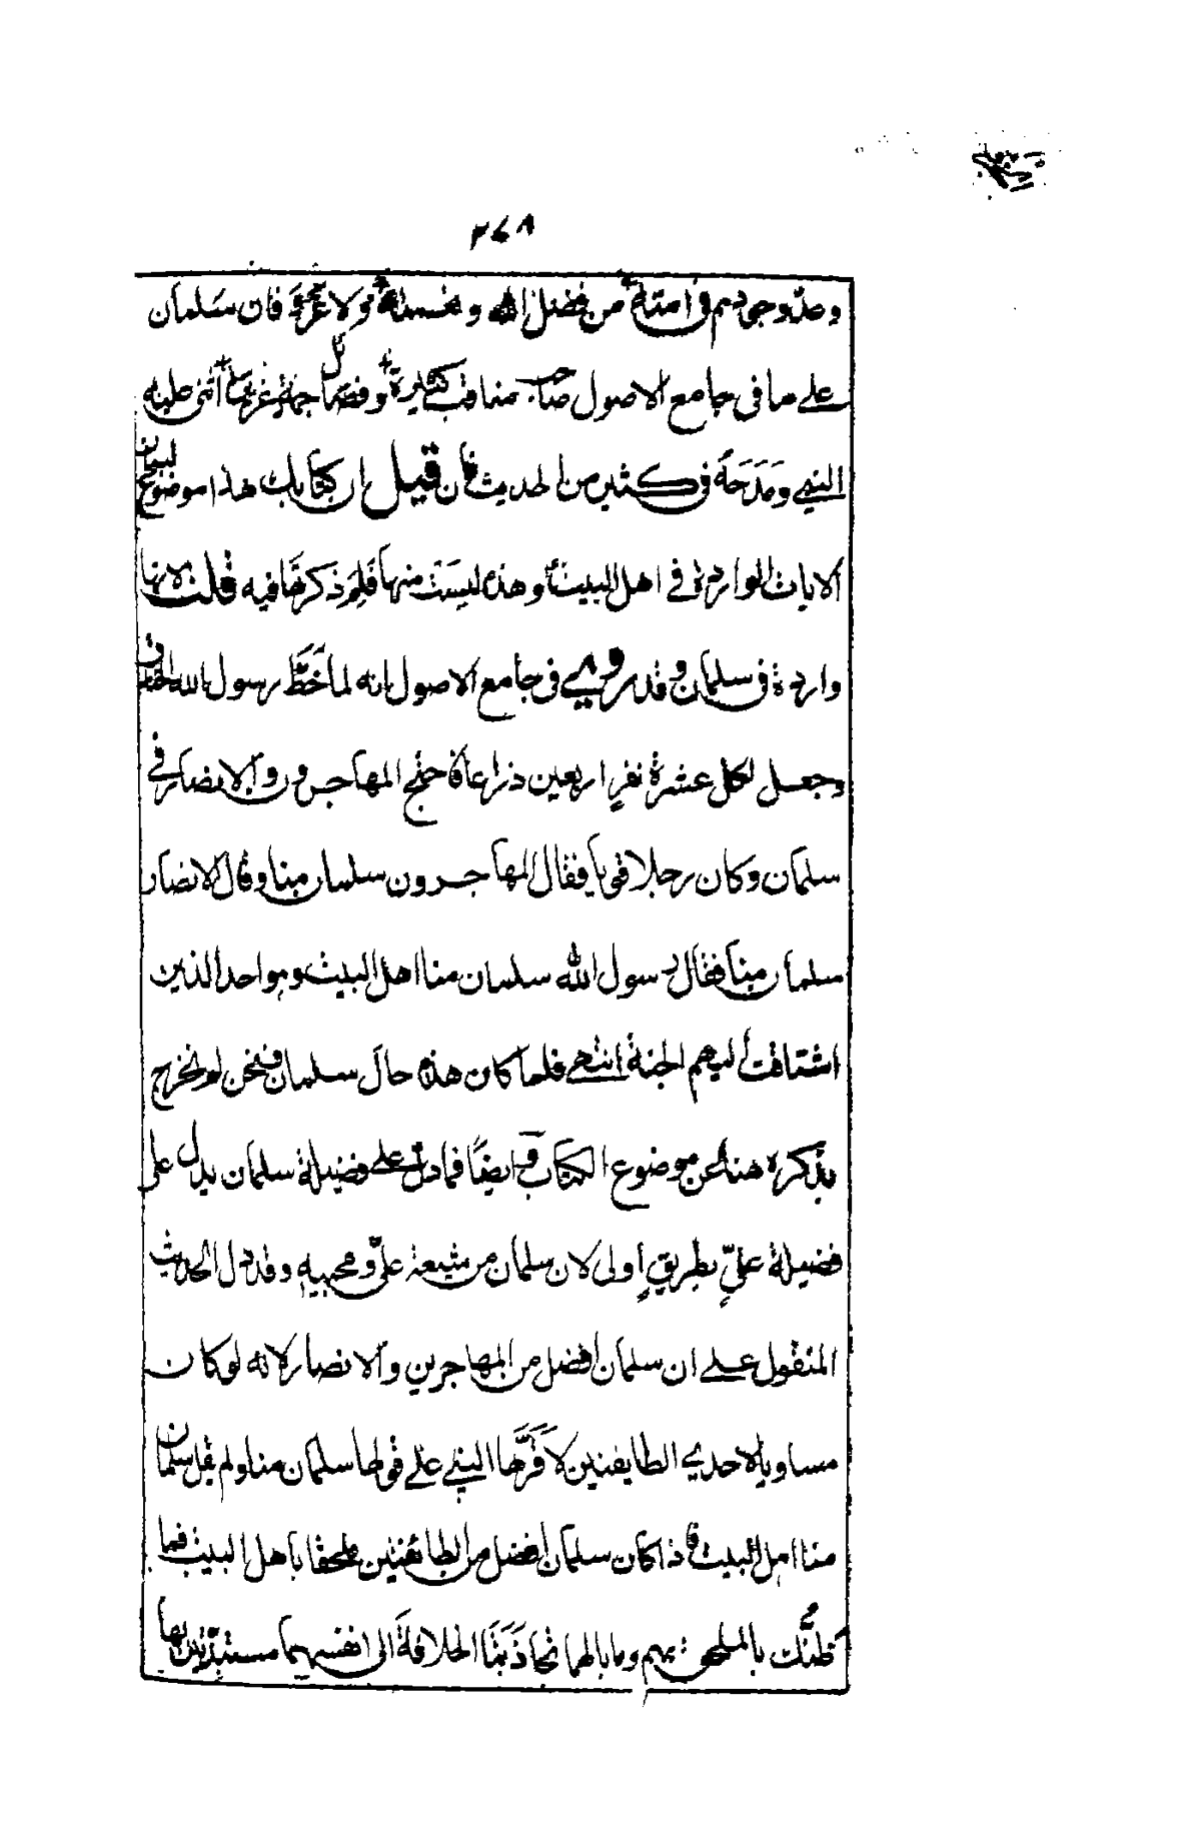 ٢٤٨
من فضل الله ولا فان سلمان
على ما في جامع الاصول صاحب مناقب كثيرة و فضائل جمة غزيرة اثنى عليه
النبي و مَدَحَهُ في كثير من الحديث فان قيل ان كتابك هذا موضوع لبيان
الايات الواردة في اهل البيت و هذه ليست منها فلِمَ ذكرتها فيه قلت لانها
واردة في سلمان و قد روي في جامع الاصول انه لما خَطَّ رسول الله الخندق
وجعل لكل عشرة نفرٍ اربعين ذراعا فاحتج المهاجرون والانصار في
سلمان وكان رجلا قويا فقال المهاجرون سلمان منا وقال الانصار
سلمان منا فقال رسول الله سلمان منا اهل البيت وهو احد الذين
اشتاقت اليهم الجنة انتهى فلما كان هذه حال سلمان فنحن لم نخرج
بذكره هنا عن موضوع الكتاب و ايضًا فما دل على فضيلة سلمان يدل على
فضيلة عليٍّ بطريقٍ اولى لان سلمان من شيعة عليّ و محبيه و قد دل الحديث
المنقول على ان سلمان افضل من المهاجرين والانصار لانه لو كان
مساويا لاحدي الطايفتين لَاَقَرَّها النبي على قولها سلمان منا و لم يقل سلمان
منا اهل البيت فاذا كان سلمان افضل من الطائفتين ملحقا باهل البيت فما
ظنّك بالملحق بهم وما بالهما الخلافة الى انفسهما مستبدّين بها